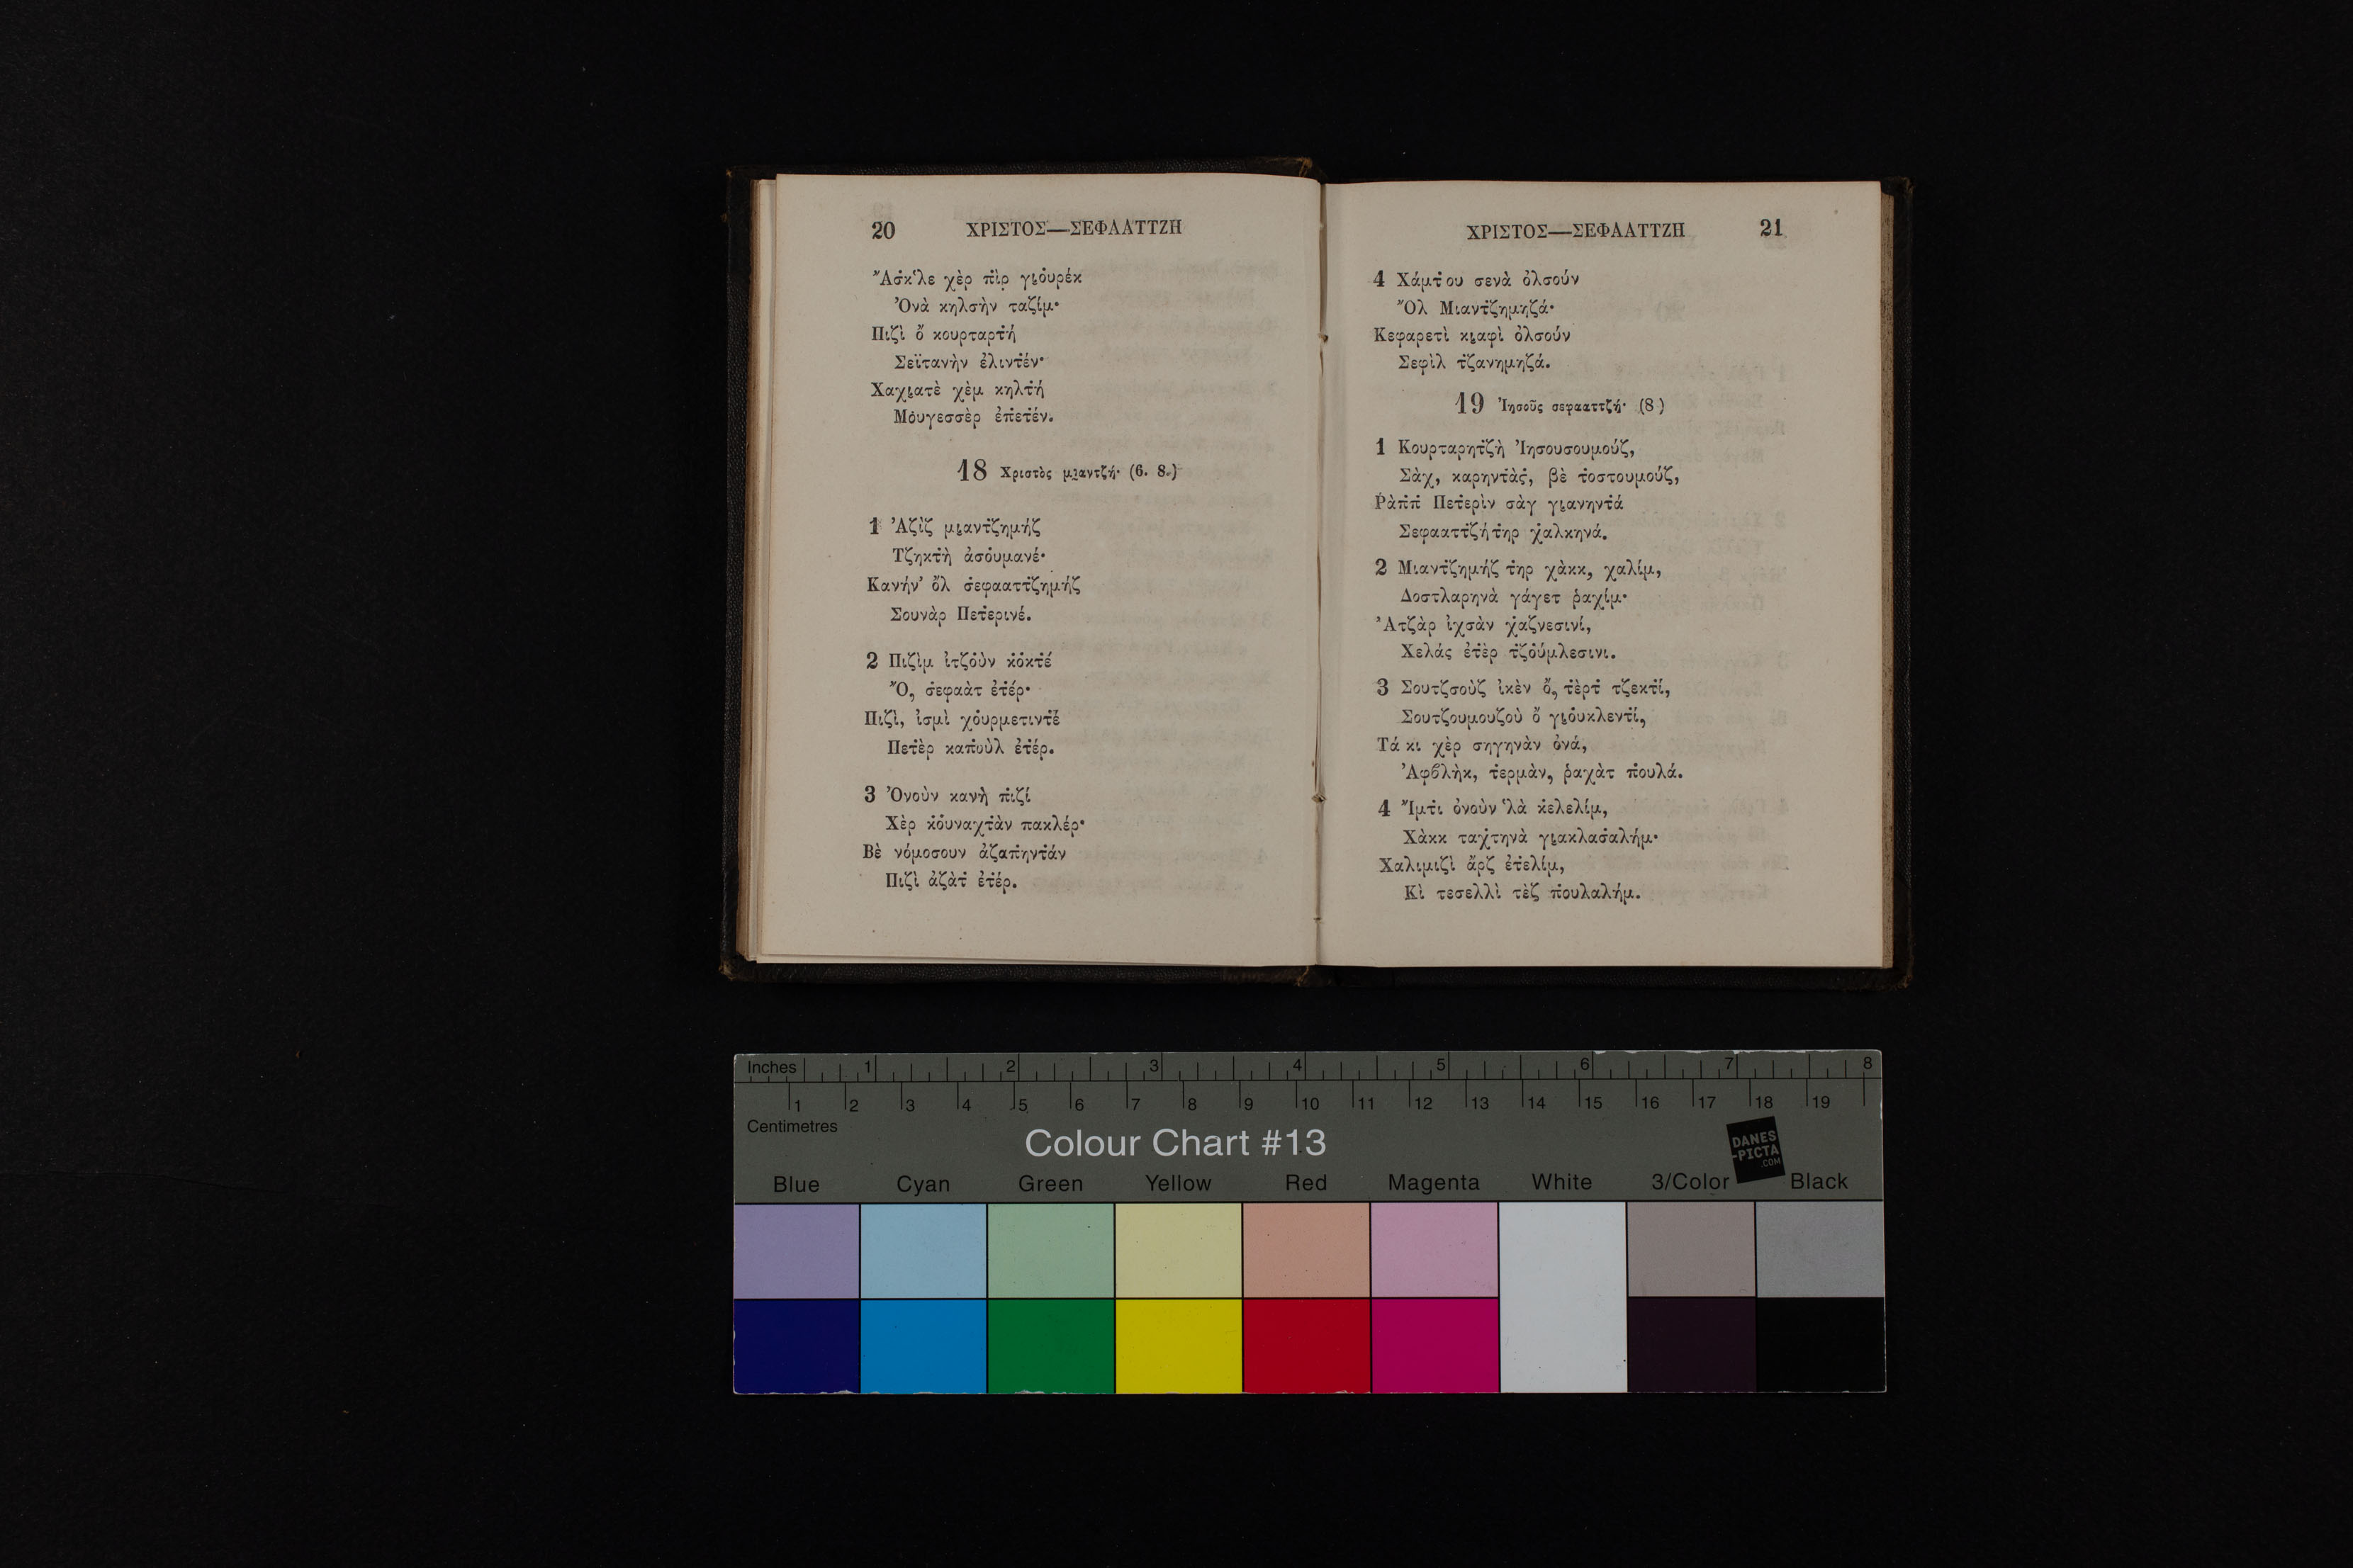 20 ΧΡΙΣΤΟΣ—ΣΕΦΑΑΤΤΖΗ
Ἄσ̇κ'λε χὲρ π̇ὶρ γιο̇υρέκ
Ὀνὰ κηλσὴν ταζίμ·
Πιζὶ ὄ κουρταρτ̇ή
Σεϊτανὴν ἐλιντ̇έν·
Χαχιατὲ χὲμ κηλτ̇ή
Μο̇υγεσσὲρ ἐπ̇ετ̇έν.
18 Χριστὸς μιαντζή· (6. 8.)
1 Ἀζὶζ μιαντ̇ζημήζ
Τζηκτ̇ὴ ἀσο̇υμανέ·
Κανήν' ὄλ σ̇εφααττ̇ζημήζ
Σουνὰρ Πετ̇ερινέ.
2 Πιζὶμ ἰτζο̇ὺν κ̇ο̇κτ̇έ
Ὄ, σ̇εφαὰτ ἐτ̇έρ·
Πιζὶ, ἰσμὶ χο̇υρμετιντ̇έ
Πετ̇ὲρ καπ̇οὺλ ἐτ̇έρ.
3 Ὀνοὺν κανὴ π̇ιζί
Χὲρ κ̇ο̇υναχτ̇ὰν πακλέρ·
Βὲ νόμοσουν ἀζαπ̇ηντ̇άν
Πιζὶ ἀζὰτ̇ ἐτ̇έρ.
ΧΡΙΣΤΟΣ—ΣΕΦΑΑΤΤΖΗ 21
4 Χάμτ̇ου σενὰ ὀλσούν
Ὄλ Μιαντ̇ζημηζά·
Κεφαρετὶ κιαφὶ ὀλσούν
Σεφὶλ τ̇ζανημηζά.
19 Ἰησοῦς σεφααττζή· (8)
1 Κουρταρητ̇ζὴ Ἰησουσουμούζ,
Σὰχ, καρηντ̇ὰσ̇, βὲ τ̇οστουμούζ,
Ῥὰπ̇π̇ Πετ̇ερὶν σὰγ γιανηντ̇ά
Σεφααττ̇ζή τ̇ηρ χ̇αλκηνά.
2 Μιαντ̇ζημήζ τ̇ηρ χὰκκ, χαλίμ,
Δοστλαρηνὰ γάγετ ῥαχίμ·
Ἀτζὰρ ἰχσὰν χ̇αζνεσινί,
Χελάς ἐτ̇ὲρ τζο̇ύμλεσινι.
3 Σουτζσοὺζ ἰκὲν ὄ, τ̇ὲρτ̇ τζεκτί,
Σουτζουμουζοὺ ὄ γιο̇υκλεντί,
Τά κι χὲρ σηγηνὰν ὀνά,
Ἀφβλὴκ, τ̇ερμὰν, ῥαχὰτ π̇ουλά.
4 Ἴμτ̇ι ὀνοὺν 'λὰ κ̇ελελίμ,
Χὰκκ ταχ̇τηνὰ γιακλασ̇αλήμ·
Χαλιμιζὶ ἄρζ ἐτ̇ελίμ,
Κὶ τεσελλὶ τὲζ π̇ουλαλήμ.
Inches 1 2 3 4 5 6 7 8
1 2 3 4 5 6 7 8 9 10 11 12 13 14 15 16 17 18 19
Centimetres
Colour Chart #13
DANES
-PICTA
.COM
Blue Cyan Green Yellow Red Magenta White 3/Color Black